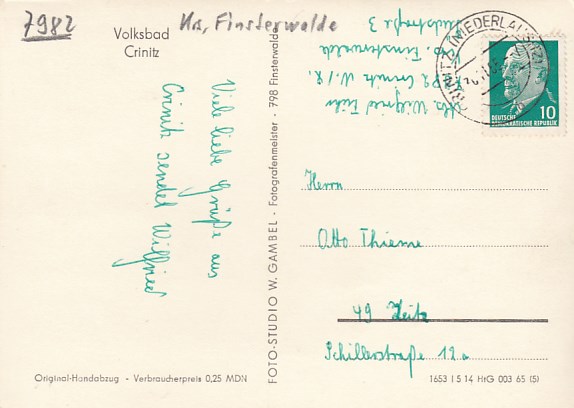 7982
Kr. Finsterwalde
Volksbad
Crinitz
Viele liebe Grüße aus
Crinitz sendet Wilfried
FOTO-STUDIO W. GAMBEL · Fotografenmeister · 798 Finsterwalde
Abs. Wilfried
Crinitz N./L.
Finsterwalde
3
CRINITZ (NIEDERLAUSITZ)
DEUTSCHE
DEMOKRATISCHE REPUBLIK
10
Herrn
Otto Thieme
49 Zeitz
Schillerstraße 12a
Original-Handabzug - Verbraucherpreis 0,25 MDN
1653 I 5 14 HrG 003 65 (5)